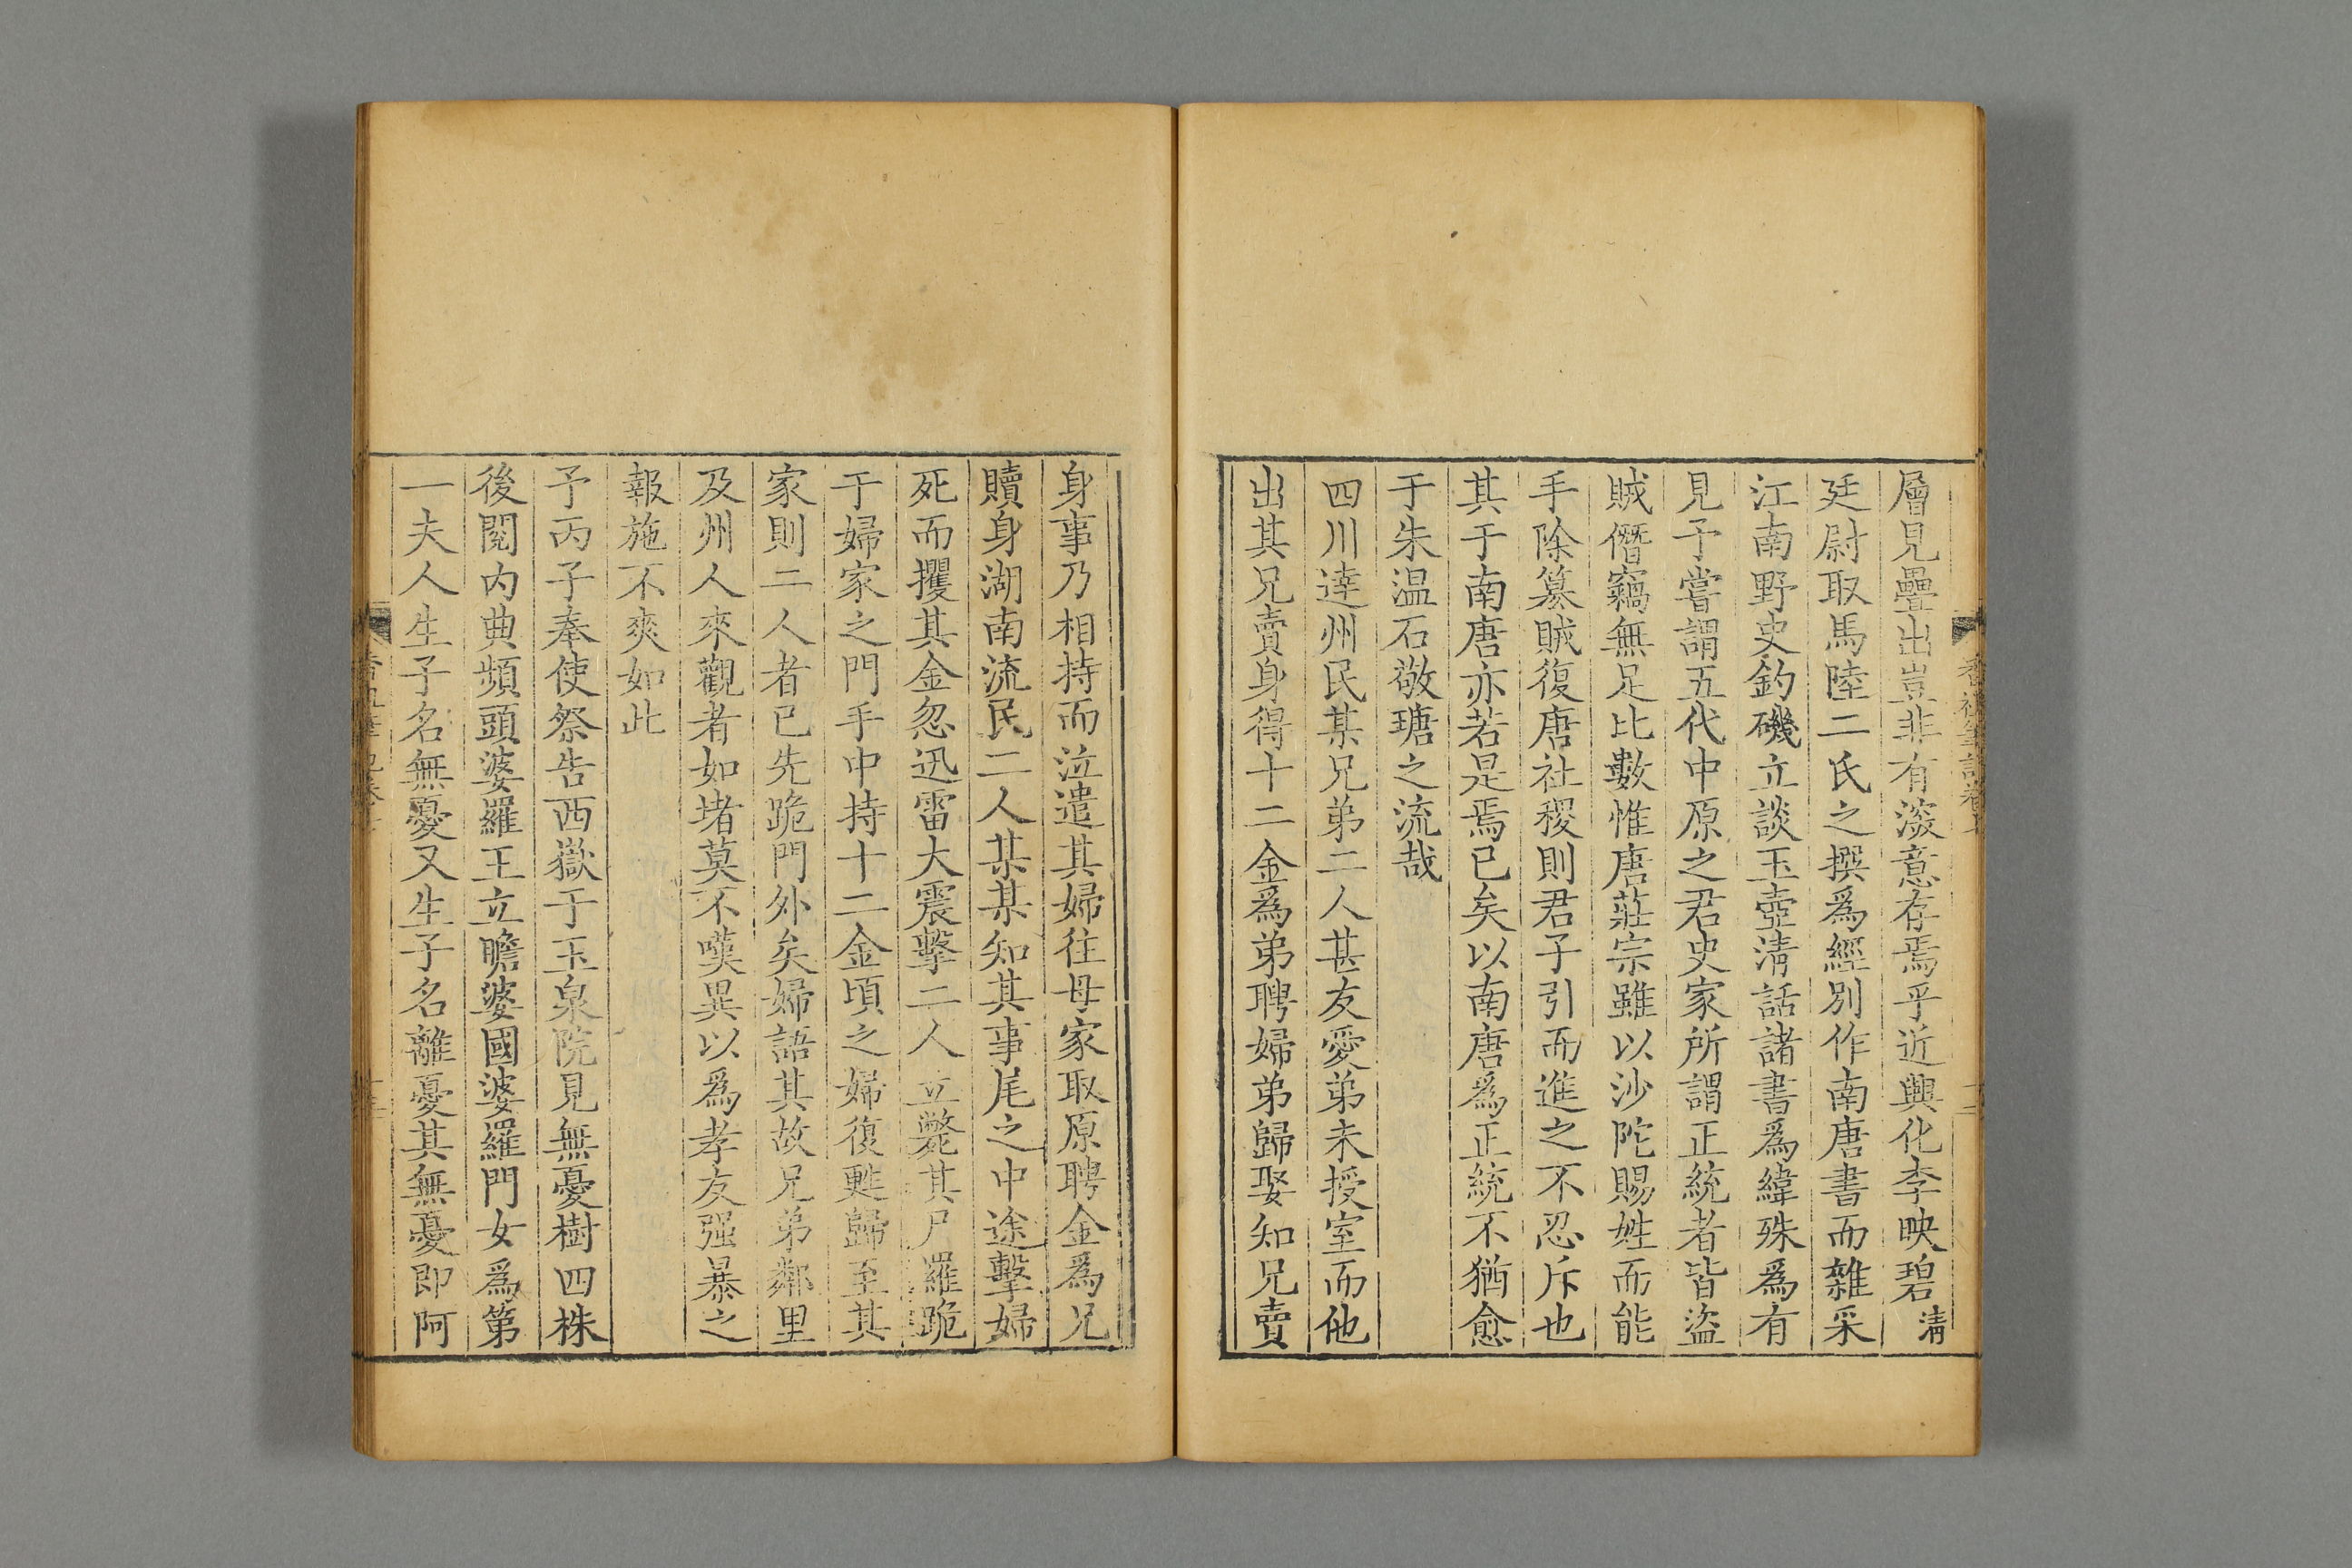 層見疊出豈非有深意存焉乎近興化李映碧清
廷尉取馬陸二氏之撰爲經別作南唐書而雜采
江南野史釣磯立談玉壺清話諸書爲緯殊爲有
見予嘗謂五代中原之君史家所謂正統者皆盜
賊僭竊無足比數惟唐莊宗雖以沙陀賜姓而能
手除篡賊復唐社稷則君子引而進之不忍斥也
其于南唐亦若是焉已矣以南唐爲正統不猶愈
于朱温石敬瑭之流哉
四川逹州民某兄弟二人甚友愛弟未授室而他
出其兄賣身得十二金爲弟聘婦弟歸娶知兄賣
身事乃相持而泣遣其婦往母家取原聘金爲兄
贖身湖南流民二人某某知其事尾之中途擊婦
死而攫其金忽迅雷大震擊二人立斃其尸羅跪
于婦家之門手中持十二金頃之婦復甦歸至其
家則二人者已先跪門外矣婦語其故兄弟鄰里
及州人來觀者如堵莫不嘆異以爲孝友强暴之
報施不爽如此
予丙子奉使祭告西嶽于玉泉院見無憂樹四株
後閱内典頻頭婆羅王立瞻婆國婆羅門女爲第
一夫人生子名無憂又生子名離憂其無憂即阿